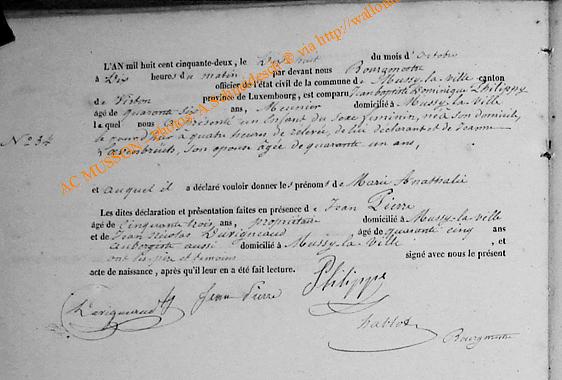 L'AN mil huit cent cinquante-deux, le Dix huit du mois d'octobre
à Dix heures du matin par devant nous Bourgmestre
officier de l'état civil de la commune de Mussy-la-Ville canton
de Virton province de Luxembourg, est comparu Jean Dominique Philippe
âgé de quarante ans, Meunier domicilié à Mussy-la-Ville
lequel nous a présenté un Enfant du sexe féminin, né à son domicile,
à quatre heures de relevée, de lui déclarant et de Jeanne
son épouse âgée de quarante un ans,
N° 34
et auquel il a déclaré vouloir donner les prénoms de Marie
Les dites déclaration et présentation faites en présence de Jean Pierre
âgé de Cinquante trois ans, propriétaire domicilié à Mussy-la-Ville
et de Jean Nicolas âgé de quarante cinq ans
aussi domicilié à Mussy-la-Ville, et
ont les père et témoins signé avec nous le présent
acte de naissance, après qu'il leur en a été fait lecture.
Philippe
Jean Pierre
Bourgmestre
AC MUSSON, photos: A. Schmidesch ® via http://wallo